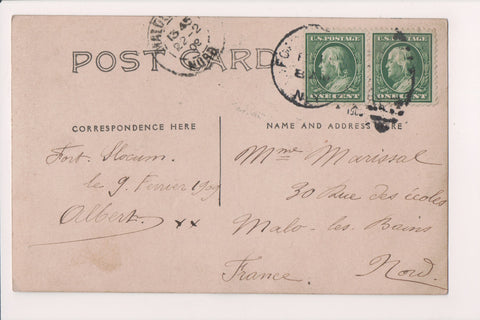 POST CARD
MALO
13 45
22-2
09
NORD
FO
N
U.S. POSTAGE
ONE CENT
U.S. POSTAGE
ONE CENT
CORRESPONDENCE HERE
NAME AND ADDRESS HERE
Fort. Slocum.
le 9. Fevrier 1909
Albert. xx
Mme Marissal
30 Rue des écoles
Malo-les Bains
Nord.
France.